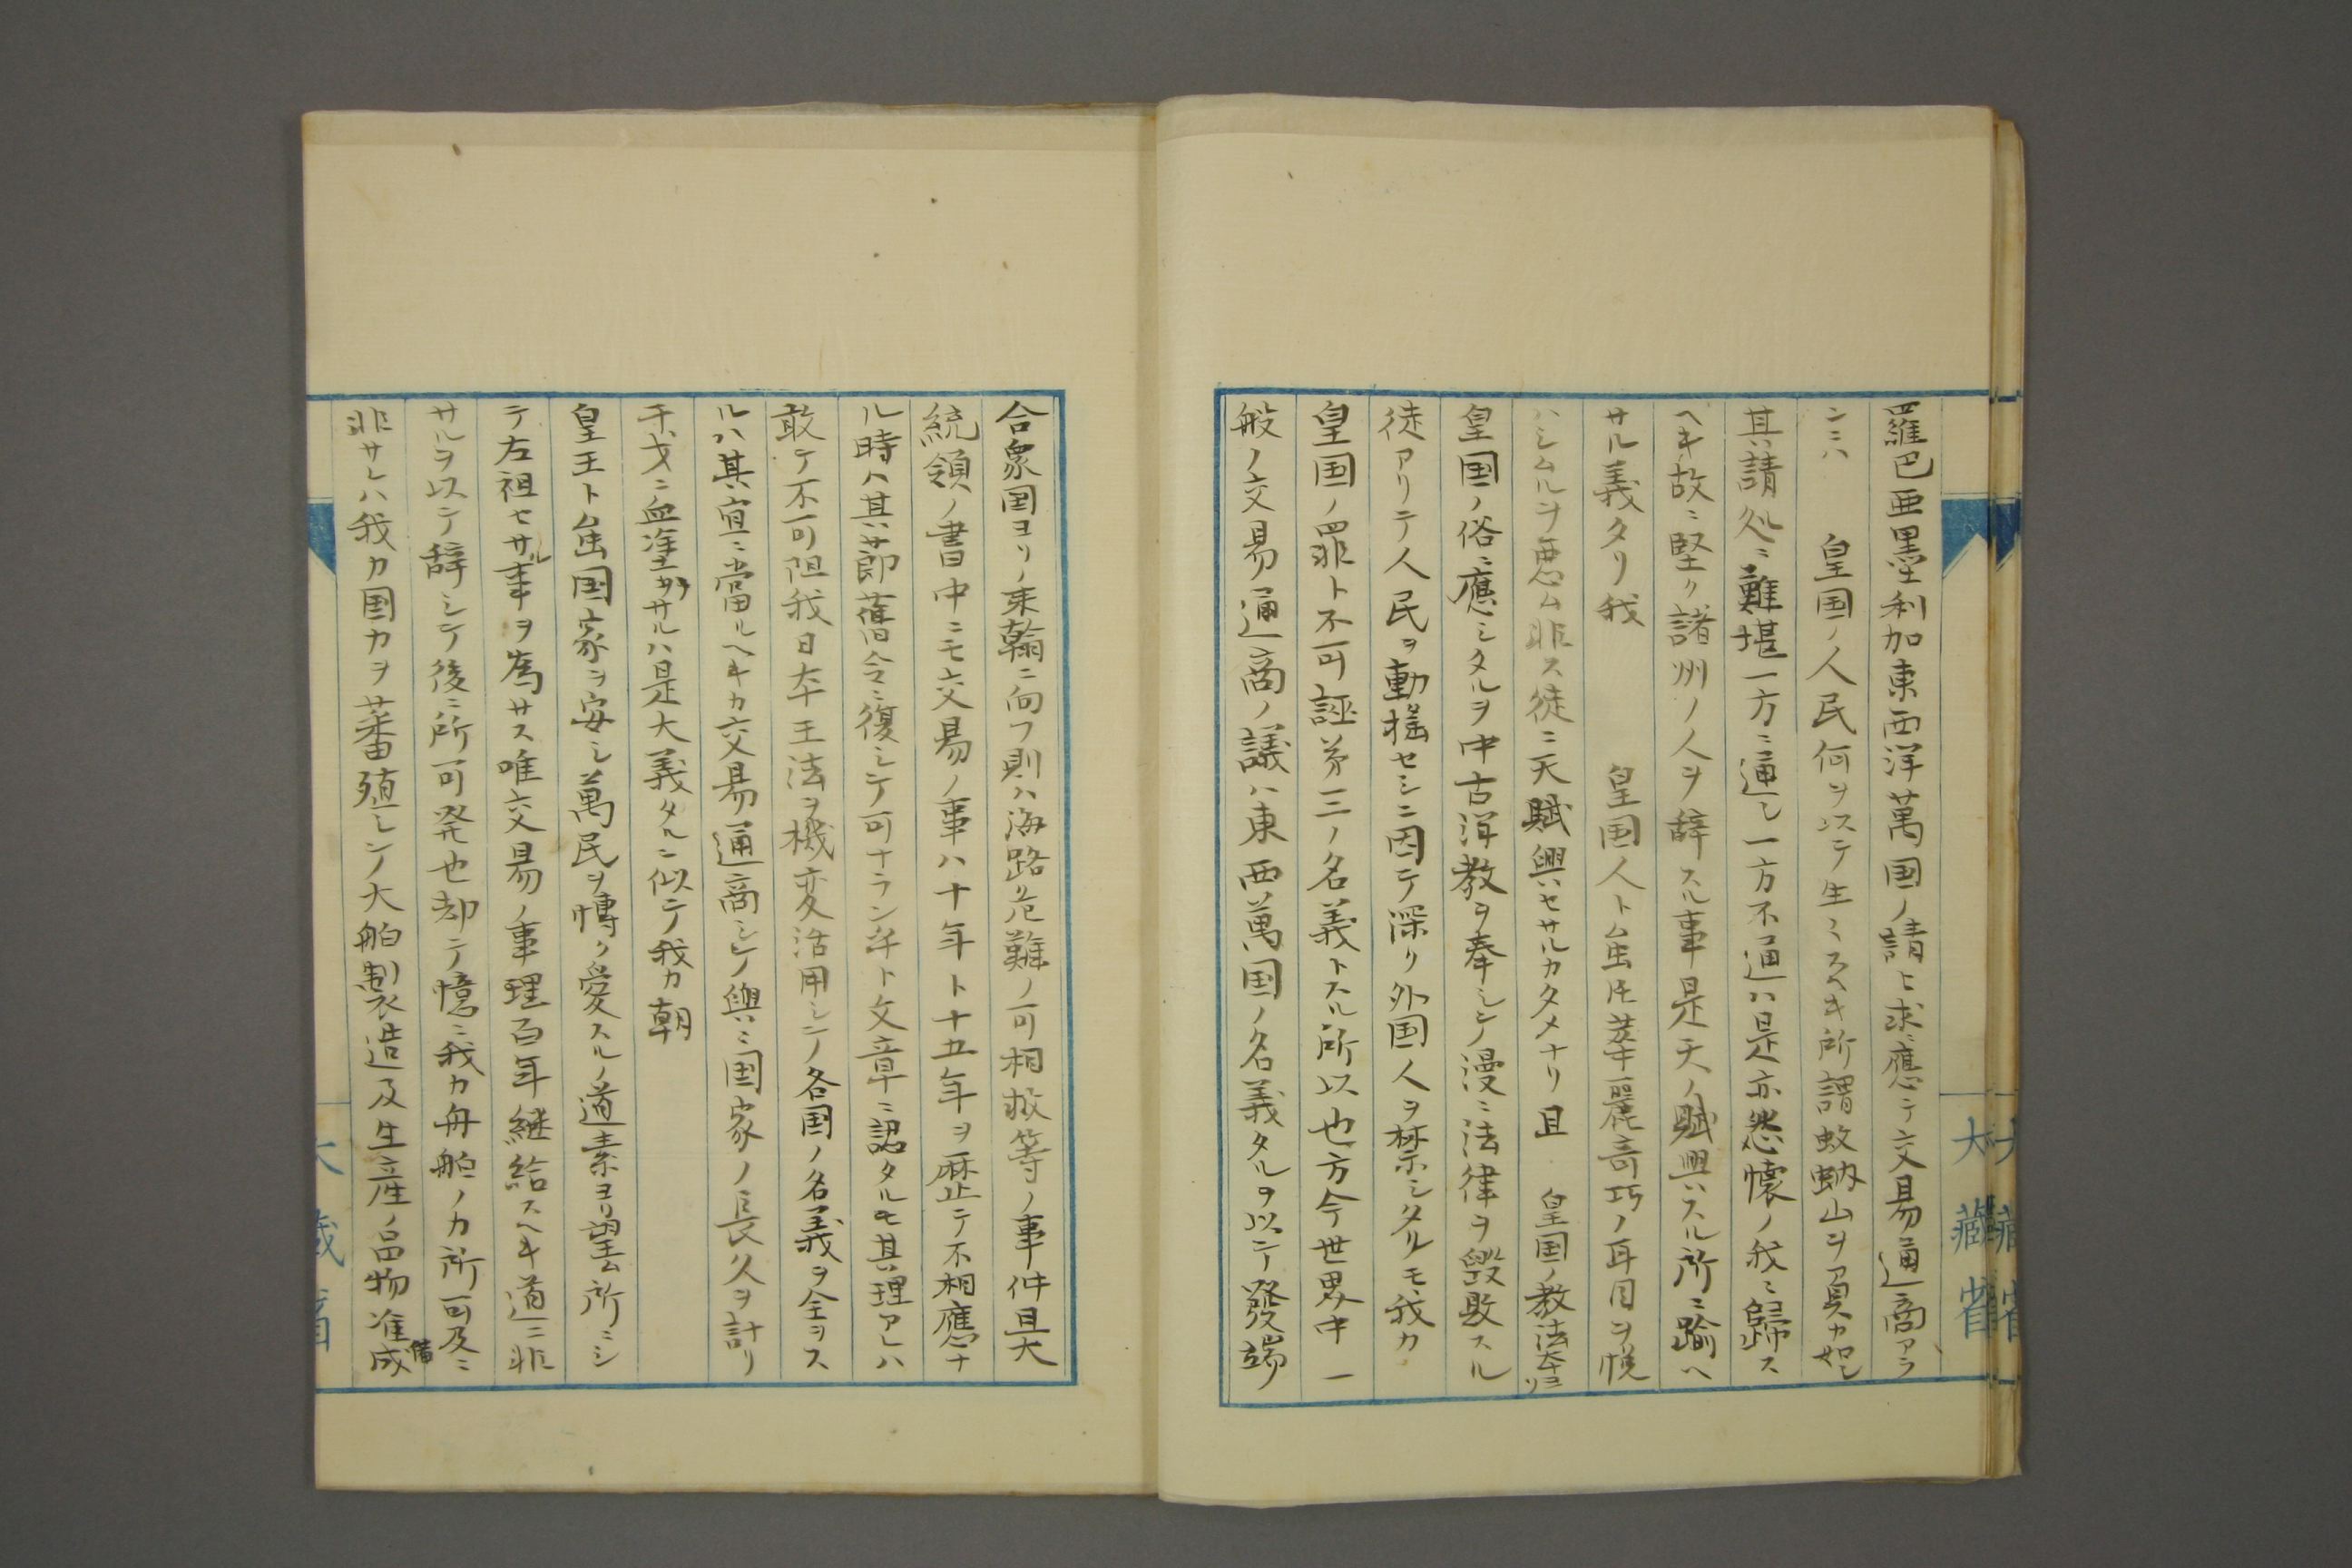 羅巴亜墨利加東西洋萬国ノ請ヒ求ニ應シテ交易通商アラ
ンニハ　皇国ノ人民何ヲ以テ生ミスヘキ所謂蚊蚋山ヲ負カ如シ
其請処ニ難堪一方ニ通シ一方不通ハ是亦愁懐ノ我ニ歸ス
ヘキ故ニ堅ク諸州ノ人ヲ辞スル事是天ノ賦與スル所ニ踰ヘ
サル義タリ我　皇国人ト虽𪜈華麗奇巧ノ耳目ヲ悅
ハシムルヲ悪ムニ非ス徒ニ天賦與セサルカタメナリ且　皇国ノ教法本ヨリ
皇国ノ俗ニ應シタルヲ中古洋教ヲ奉シ〆漫ニ法律ヲ毀敗スル
徒アリテ人民ヲ動揺セシニ因テ深ク外国人ヲ禁シタルモ我カ
皇国ノ罪ト不可誣第三ノ名義トスル所以也方今世界中一
般ノ交易通商ノ議ハ東西萬国ノ名義タルヲ以テ發端
合衆国ヨリノ来翰ニ向フ則ハ海路危難ノ可相救等ノ事件且大
統領ノ書中ニモ交易ノ事ハ十年ト十五年ヲ歴テ不相應ナ
ル時ハ其節舊令ニ復シテ可ナラン等ト文章ニ認タルモ其理アレハ
敢テ不可阻我日本王法ヲ機変活用シテ各国ノ名義ヲ全ヲス
ルハ其宜ニ當ルヘキカ交易通商シテ與ニ国家ノ長久ヲ計リ
干戈ニ血塗ラサルハ是大義タルニ似テ我カ朝
皇王ト虽国家ヲ安シ萬民ヲ博ク愛スルノ道素ヨリ望ム所ニシ
テ左袒セサル事ヲ為サス唯交易ノ事理百年継給スヘキ道ニ非
サルヲ以テ辞シテ後ニ所可発也却テ憶ニ我カ舟舶ノカ所可及ニ
非サレハ我カ国カヲ蕃殖シテ大舶製造及生産ノ品物准備成
大藏省